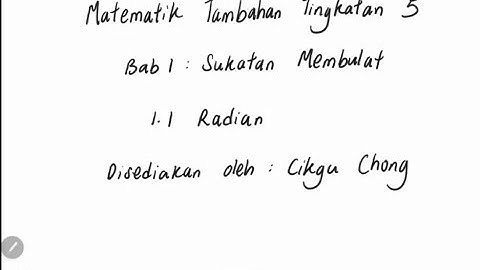 Matematik Tambahan Tingkatan 5
Bab 1 : Sukatan Membulat
1.1 Radian
Disediakan oleh : Cikgu Chong